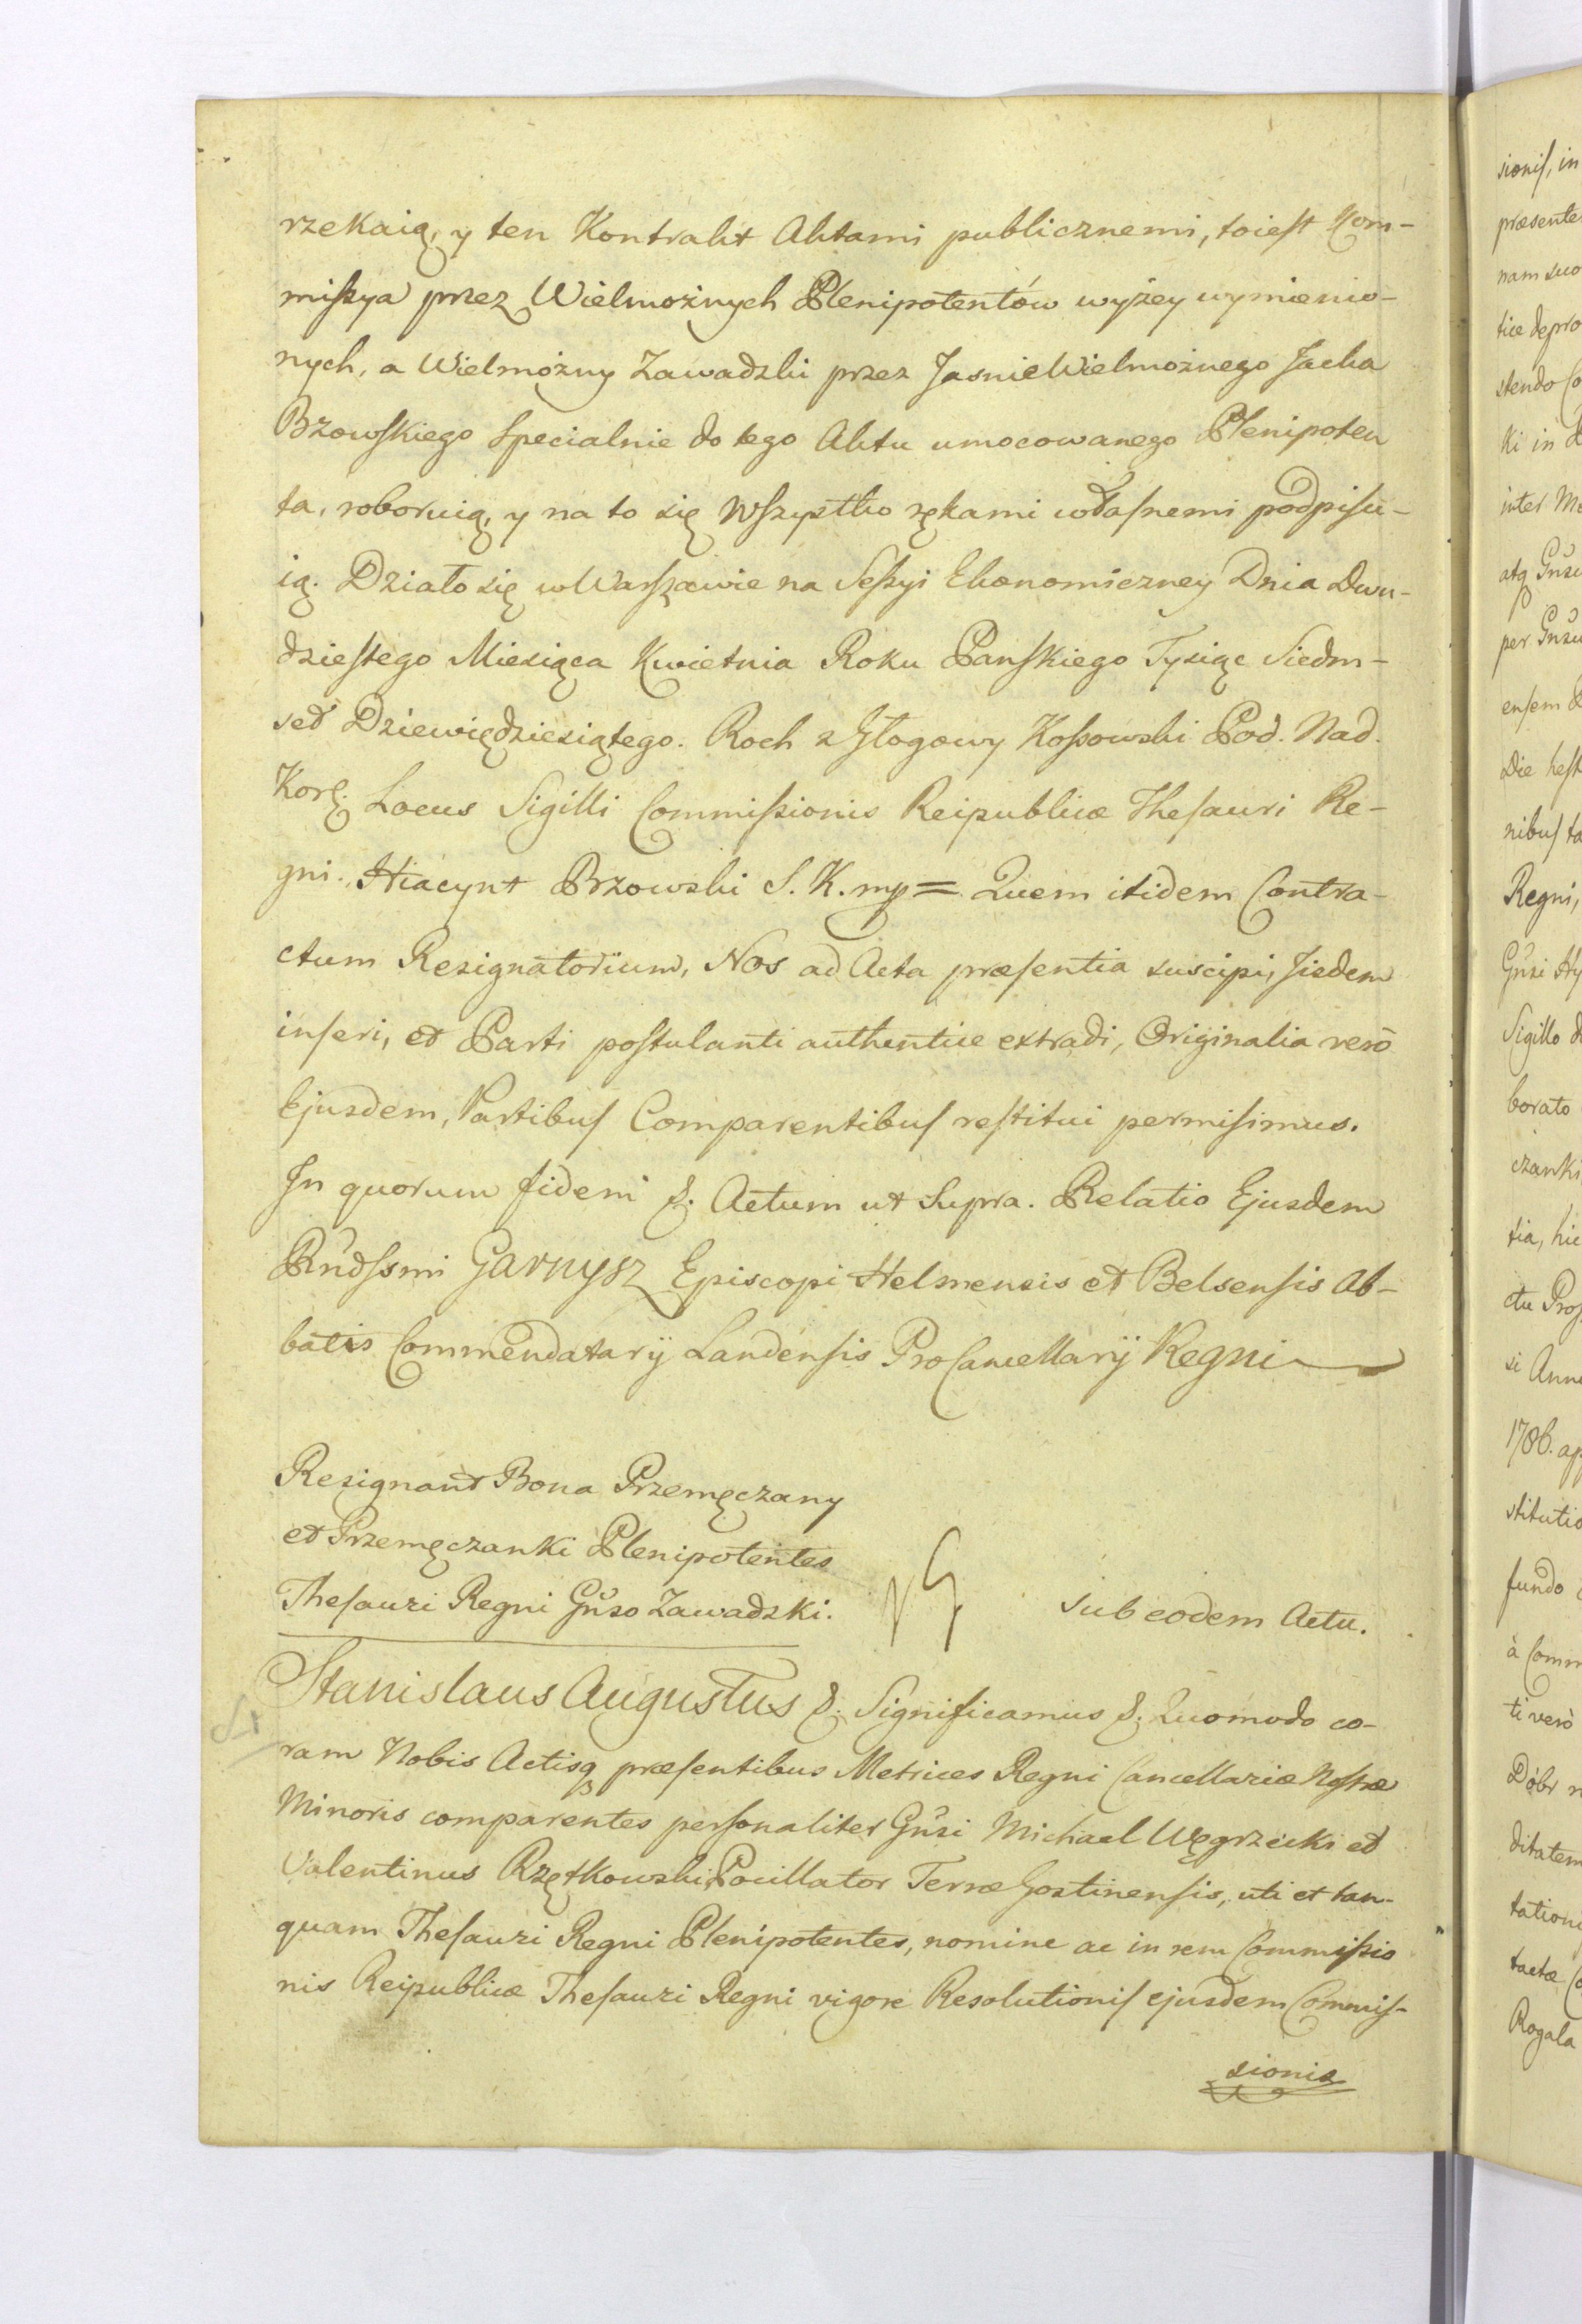 rzekaią, y ten Kontrakt Aktami publicznemi, toiest Kom-
missya przez Wielmożnych Plenipotentów wyżey wymienio-
nych, a Wielmożny Zawadzki przez JasnieWielmożnego Jacka
Bzowskiego Specialnie do tego Aktu umocowanego Plenipoten
ta, roboruią, y na to się wszystko rękami własnemi podpisu-
ią. Działo się w Warszawie na Sessyi Ekonomiczney Dnia Dwu-
dziestego Miesiąca Kwietnia Roku Panskiego Tysiąc Siedm-
set Dziewiędziesiątego. Roch z Głogowy Kossowski Pod. Nad.
Kor. Locus Sigilli Commissionis Reipublicæ Thesauri Re-
gni. Hiacynt Brzowski S. K. mp = Quem itidem Contra-
ctum Resignatorium, Nos ad Acta præsentia suscipi, Jisdem
inseri, et Parti postulanti authentice extradi, Originalia verò
Ejusdem, Partibus Comparentibus restitui permisimus.
In quorum fidem &. Actum ut Supra. Relatio Ejusdem
Rndssmi Garnysz Episcopi Helmensis et Belsensis Ab-
batis Commendatarij Landensis ProCancellarij Regni
Resignant Bona Przemęczany
et Przemęczanki Plenipotentes
Thesauri Regni Gnso Zawadzki.
sub eodem Actu.
Stanislaus Augustus &. Significamus &. Quomodo co-
ram Nobis Actisq præsentibus Metrices Regni Cancellariæ Nostræ
Minoris comparentes personaliter Gnsi Michael Węgrzecki et
Valentinus Rzętkowski Pocillator Terræ Gostinensis, uti et tan-
quam Thesauri Regni Plenipotentes, nomine ac in rem Commissio
nis Reipublicæ Thesauri Regni vigore Resolutionis ejusdem Commis-
sionis
sionis, in
præsente
nam suo
tice depro
stendo Co
ki in
inter
atq Gnsu
per Gnsu
ensem
Die hest
nibus ta
Regni,
Gnsi Hy
Sigillo
borato
czanki
tia, hic
ctu Pros
si Ann
1786. ap
stitutio
fundo
à Comm
ti verò
Dóbr
ditatem
tation
tactæ
Rogala